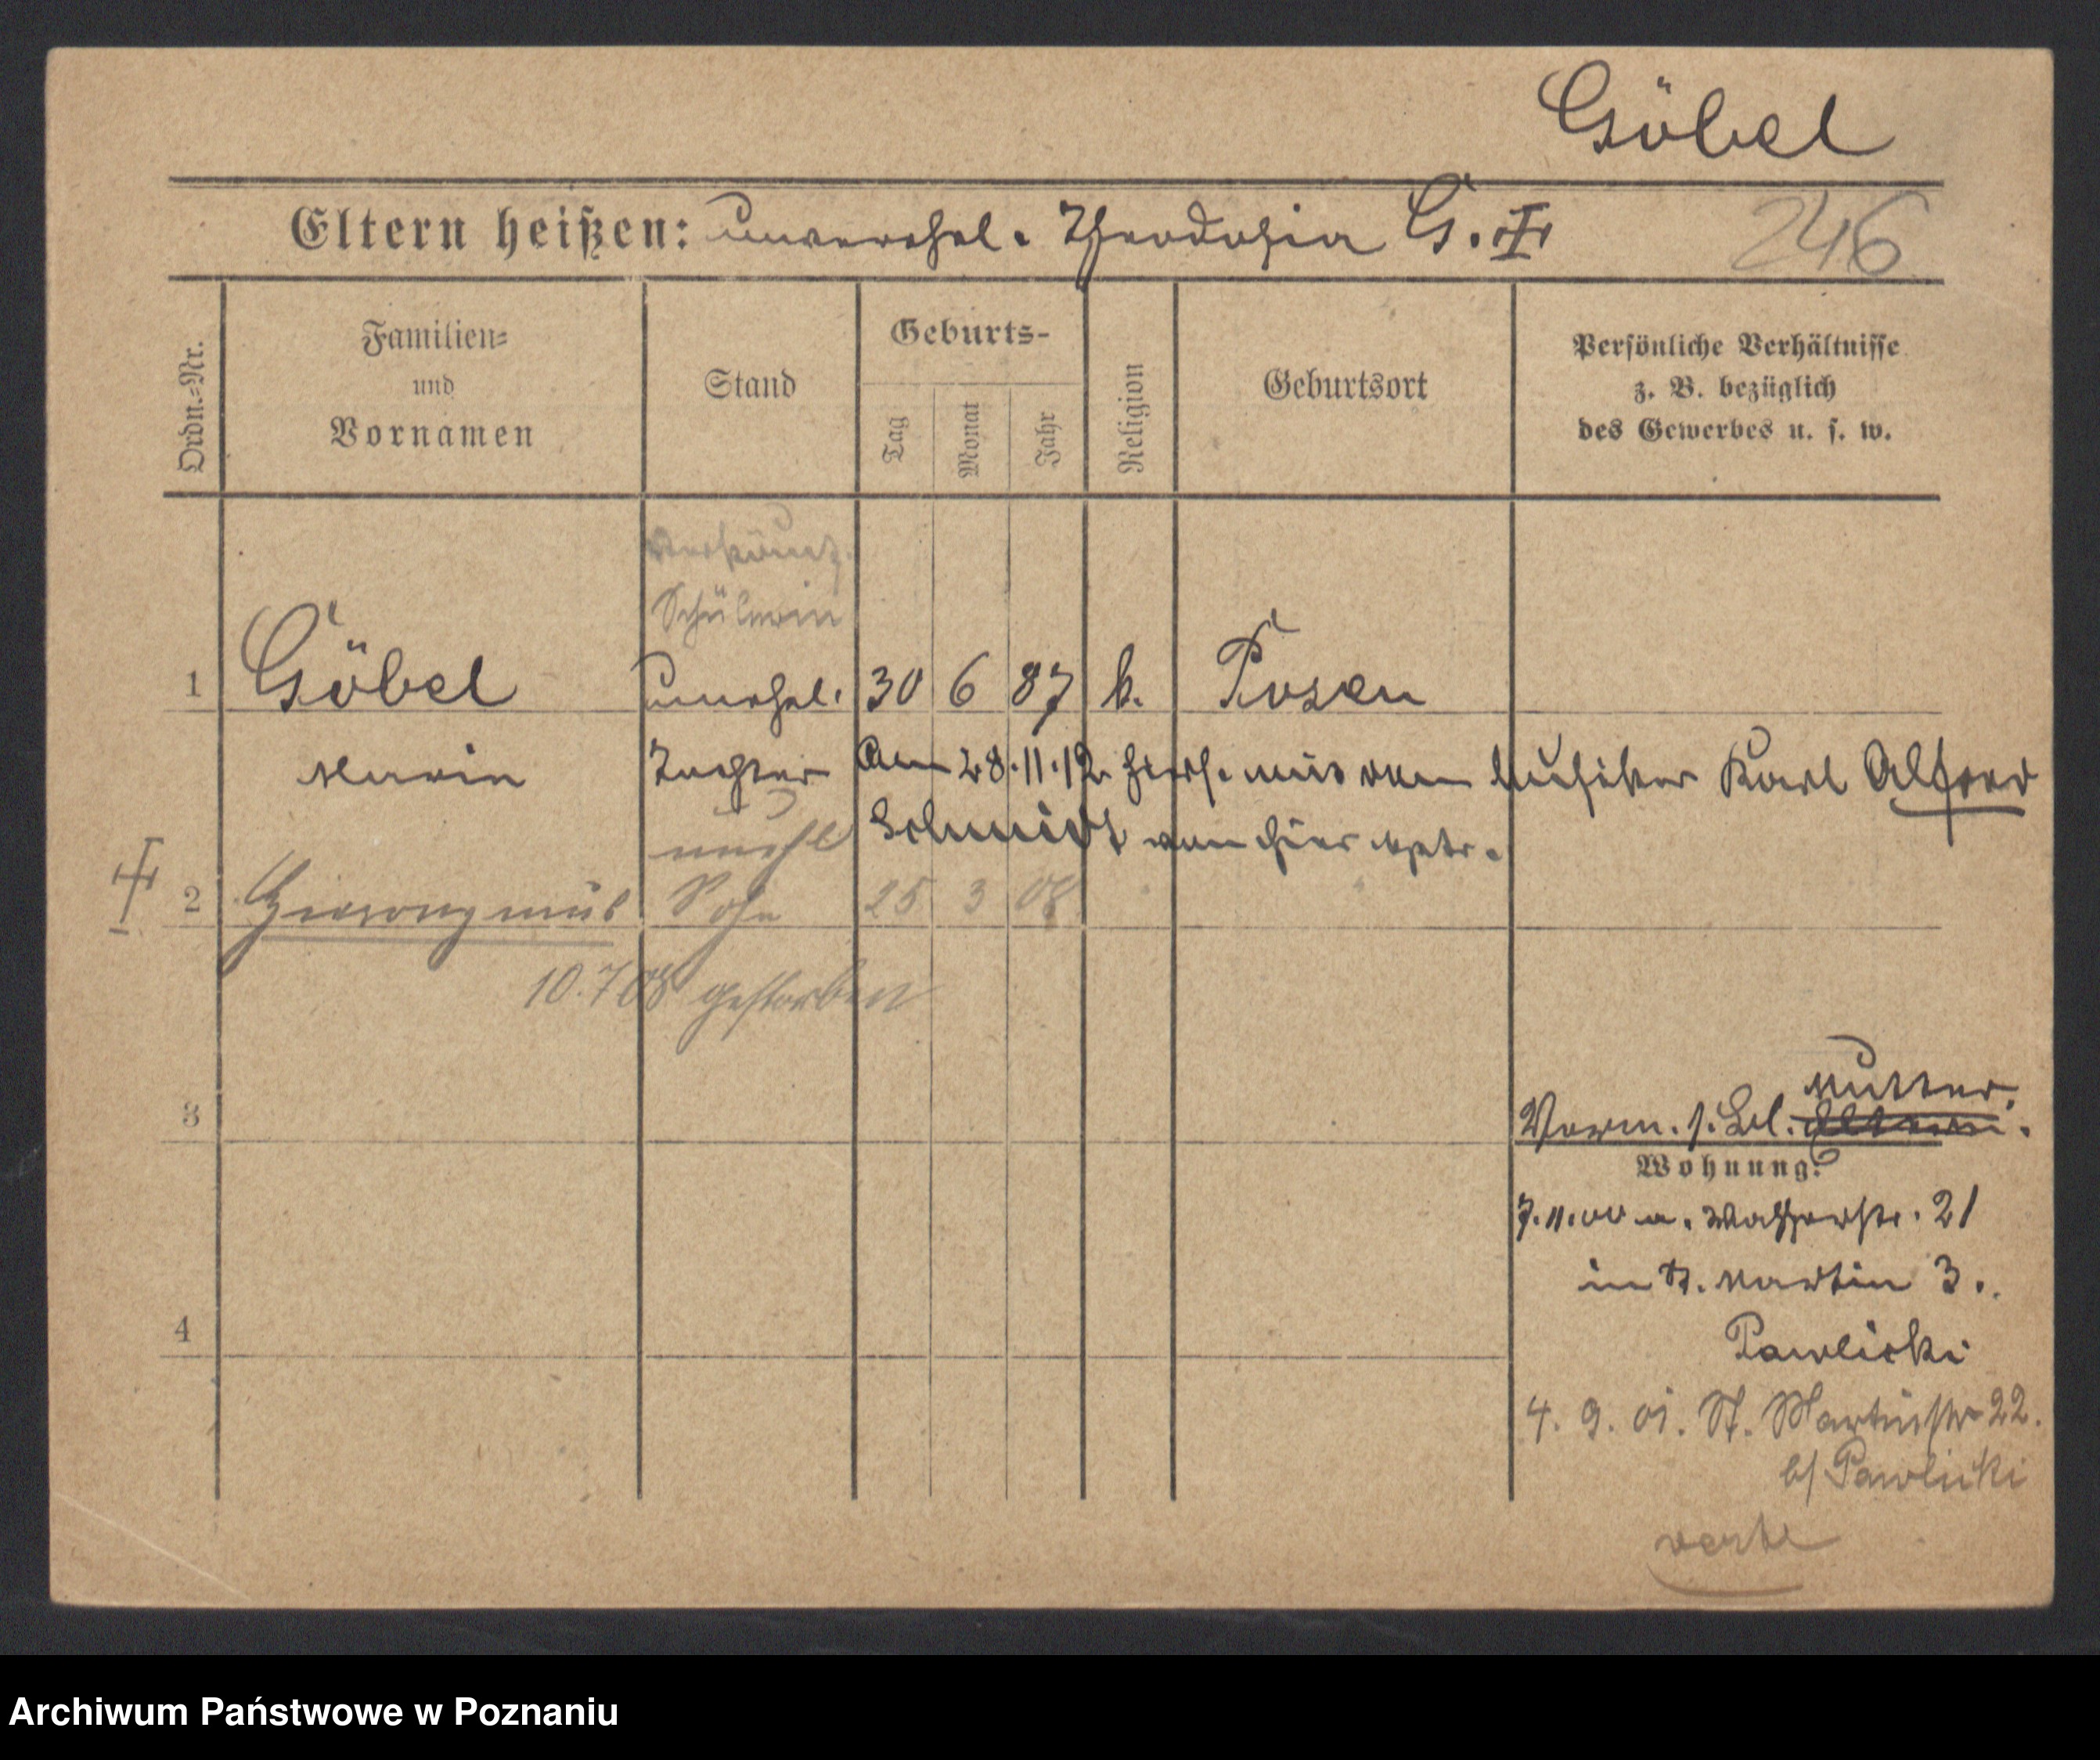 Göbel
Eltern heißen: unverehel. Theodosia G. ‡
246
Ordn.=Nr.
Familien=
und
Vornamen
Stand
Geburts-
Tag
Monat
Jahr
Religion
Geburtsort
Persönliche Verhältnisse
z. B. bezüglich
des Gewerbes u. s. w.
Schülerin
1 Göbel unehel. 30 6 87 k. Posen
Maria Tochter Am 28.11.12 mit dem Musiker Karl Alfred
Schmidt von hier
unehl
2 Hieronymus Sohn 25 3 08
10.7 08 gestorben
3
Mutter.
Vorm. s. Bl. Eltern.
Wohnung:
7.11.00 a. Wasserstr. 21
in St. Martin 3.
4
Pawlicki
4. 9. 01. St. Martinstr 22.
b/ Pawlicki
Archiwum Państwowe w Poznaniu